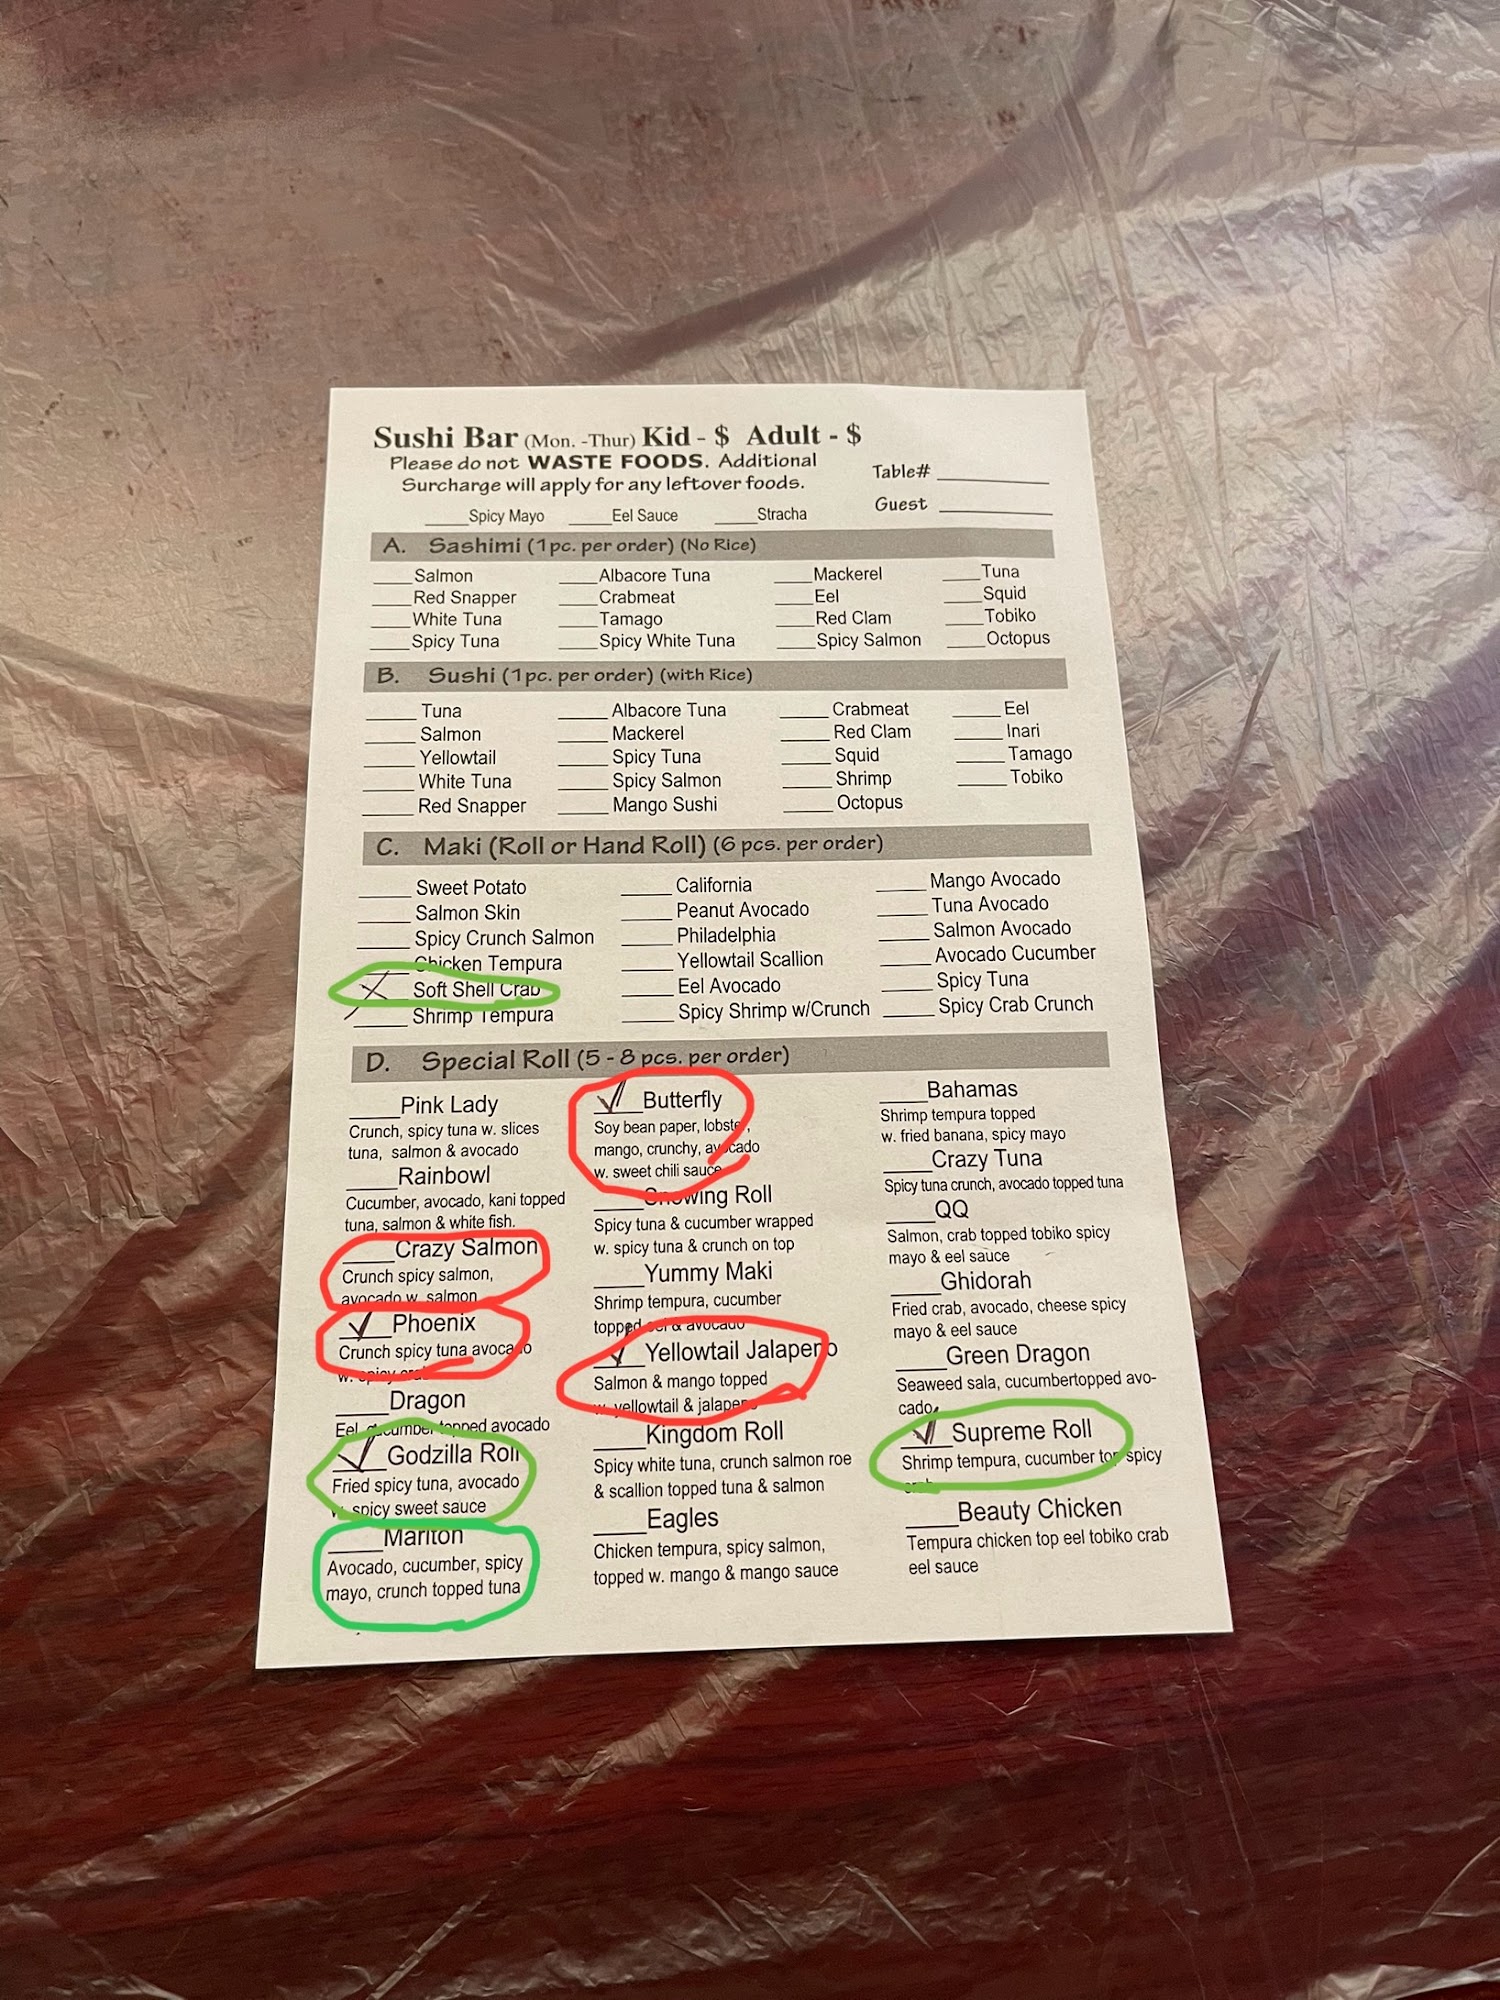 Sushi Bar (Mon. -Thur) Kid - $ Adult - $
Please do not WASTE FOODS. Additional
Surcharge will apply for any leftover foods.
Table#
Guest
Spicy Mayo Eel Sauce Stracha
A. Sashimi (1pc. per order) (No Rice)
Salmon Albacore Tuna Mackerel Tuna
Red Snapper Crabmeat Eel Squid
White Tuna Tamago Red Clam Tobiko
Spicy Tuna Spicy White Tuna Spicy Salmon Octopus
B. Sushi (1pc. per order) (with Rice)
Tuna Albacore Tuna Crabmeat Eel
Salmon Mackerel Red Clam Inari
Yellowtail Spicy Tuna Squid Tamago
White Tuna Spicy Salmon Shrimp Tobiko
Red Snapper Mango Sushi Octopus
C. Maki (Roll or Hand Roll) (6 pcs. per order)
Sweet Potato California Mango Avocado
Salmon Skin Peanut Avocado Tuna Avocado
Spicy Crunch Salmon Philadelphia Salmon Avocado
Chicken Tempura Yellowtail Scallion Avocado Cucumber
Soft Shell Crab Eel Avocado Spicy Tuna
Shrimp Tempura Spicy Shrimp w/Crunch Spicy Crab Crunch
D. Special Roll (5 - 8 pcs. per order)
Pink Lady
Crunch, spicy tuna w. slices
tuna, salmon & avocado
Rainbowl
Cucumber, avocado, kani topped
tuna, salmon & white fish.
Crazy Salmon
Crunch spicy salmon,
avocado w. salmon
Phoenix
Crunch spicy tuna avocado
w. spicy crab
Dragon
Eel, cucumber topped avocado
Godzilla Roll
Fried spicy tuna, avocado
w. spicy sweet sauce
Mariton
Avocado, cucumber, spicy
mayo, crunch topped tuna
Butterfly
Soy bean paper, lobster,
mango, crunchy, avocado
w. sweet chili sauce
Snowing Roll
Spicy tuna & cucumber wrapped
w. spicy tuna & crunch on top
Yummy Maki
Shrimp tempura, cucumber
topped eel & avocado
Yellowtail Jalapeno
Salmon & mango topped
w. yellowtail & jalapeno
Kingdom Roll
Spicy white tuna, crunch salmon roe
& scallion topped tuna & salmon
Eagles
Chicken tempura, spicy salmon,
topped w. mango & mango sauce
Bahamas
Shrimp tempura topped
w. fried banana, spicy mayo
Crazy Tuna
Spicy tuna crunch, avocado topped tuna
QQ
Salmon, crab topped tobiko spicy
mayo & eel sauce
Ghidorah
Fried crab, avocado, cheese spicy
mayo & eel sauce
Green Dragon
Seaweed sala, cucumbertopped avo-
cado
Supreme Roll
Shrimp tempura, cucumber top spicy
crab
Beauty Chicken
Tempura chicken top eel tobiko crab
eel sauce